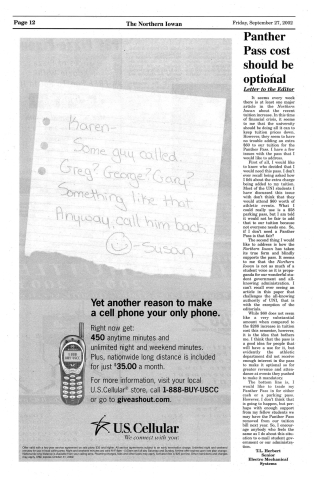 Page 12
The Northern Iowan
Friday, September 27, 2002
Karen-
Some guy called.
Greg? George? Gary?
Something like that.
Anyway, call him back.
-Susan
Yet another reason to make
a cell phone your only phone.
Right now get:
450 anytime minutes and
unlimited night and weekend minutes.
Plus, nationwide long distance is included
for just $35.00 a month.
For more information, visit your local
U.S. Cellular® store, call 1-888-BUY-USCC
or go to giveashout.com.
U.S. Cellular
We connect with you.
Panther
Pass cost
should be
optional
Letter to the Editor
It seems every week
there is at least one major
article in the Northern
Iowan about the recent
tuition increase. In this time
of financial crisis, it seems
to me that the university
should be doing all it can to
keep tuition prices down.
However, they seem to have
no trouble adding an extra
$60 to our tuition for the
Panther Pass. I have a few
issues with the pass that I
would like to address.
First of all, I would like
to know who decided that I
would need this pass. I don't
ever recall being asked how
I felt about the extra charge
being added to my tuition.
Most of the UNI students I
have discussed this issue
with don't think that they
would attend $60 worth of
athletic events. What I
could really use is a $55
parking pass, but I am told
it would not be fair to add
that to our tuition because
not everyone needs one. So,
if I don't need a Panther
Pass is that fair?
The second thing I would
like to address is how the
Northern Iowan has taken
its true form and blindly
supports the pass. It seems
to me that the Northern
Iowan is not as much of a
student voice as it is propa-
ganda for our wonderful stu-
dent government and all-
knowing administration. I
can't recall ever seeing an
article in this paper that
challenges the all-knowing
authority of UNI, that is
with the exception of the
editorials.
While $60 does not seem
like a very substantial
amount when compared to
the $286 increase in tuition
cost this semester, however,
it is the idea that bothers
me. I think that the pass is
a good idea for people that
will have a use for it, but
evidently the athletic
department did not receive
enough interest in the pass
to make it optional so for
greater revenue and atten-
dance at events they pushed
to make it mandatory.
The bottom line is, I
would like to trade my
Panther Pass in for either
cash or a parking pass.
However, I don't think that
is going to happen, but per-
haps with enough support
from my fellow students we
may have the Panther Pass
removed from our tuition
bill next year. So, I encour-
age anybody who feels the
same as I do about this situ-
ation to e-mail student gov-
ernment or our administra-
tion.
T.L. Herbert
Senior
Electro Mechanical
Systems